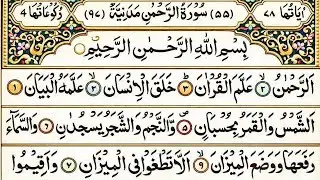 اٰیَاتُهَا ٤٨ (٥٥) سُوْرَةُ الرَّحْمٰنِ مَدَنِیَّةٌ (٩٧) رُكُوْعَاتُهَا ٣
بِسْمِ اللّٰهِ الرَّحْمٰنِ الرَّحِیْمِ
اَلرَّحْمٰنُ ۙ﴿۱﴾ عَلَّمَ الْقُرْاٰنَ ؕ﴿۲﴾ خَلَقَ الْاِنْسَانَ ۙ﴿۳﴾ عَلَّمَهُ الْبَیَانَ ﴿۴﴾
اَلشَّمْسُ وَالْقَمَرُ بِحُسْبَانٍ ﴿۵﴾ وَّالنَّجْمُ وَالشَّجَرُ یَسْجُدٰنِ ﴿۶﴾ وَالسَّمَآءَ
رَفَعَهَا وَوَضَعَ الْمِیْزَانَ ﴿۷﴾ اَلَّا تَطْغَوْا فِی الْمِیْزَانِ ﴿۸﴾ وَاَقِیْمُوا